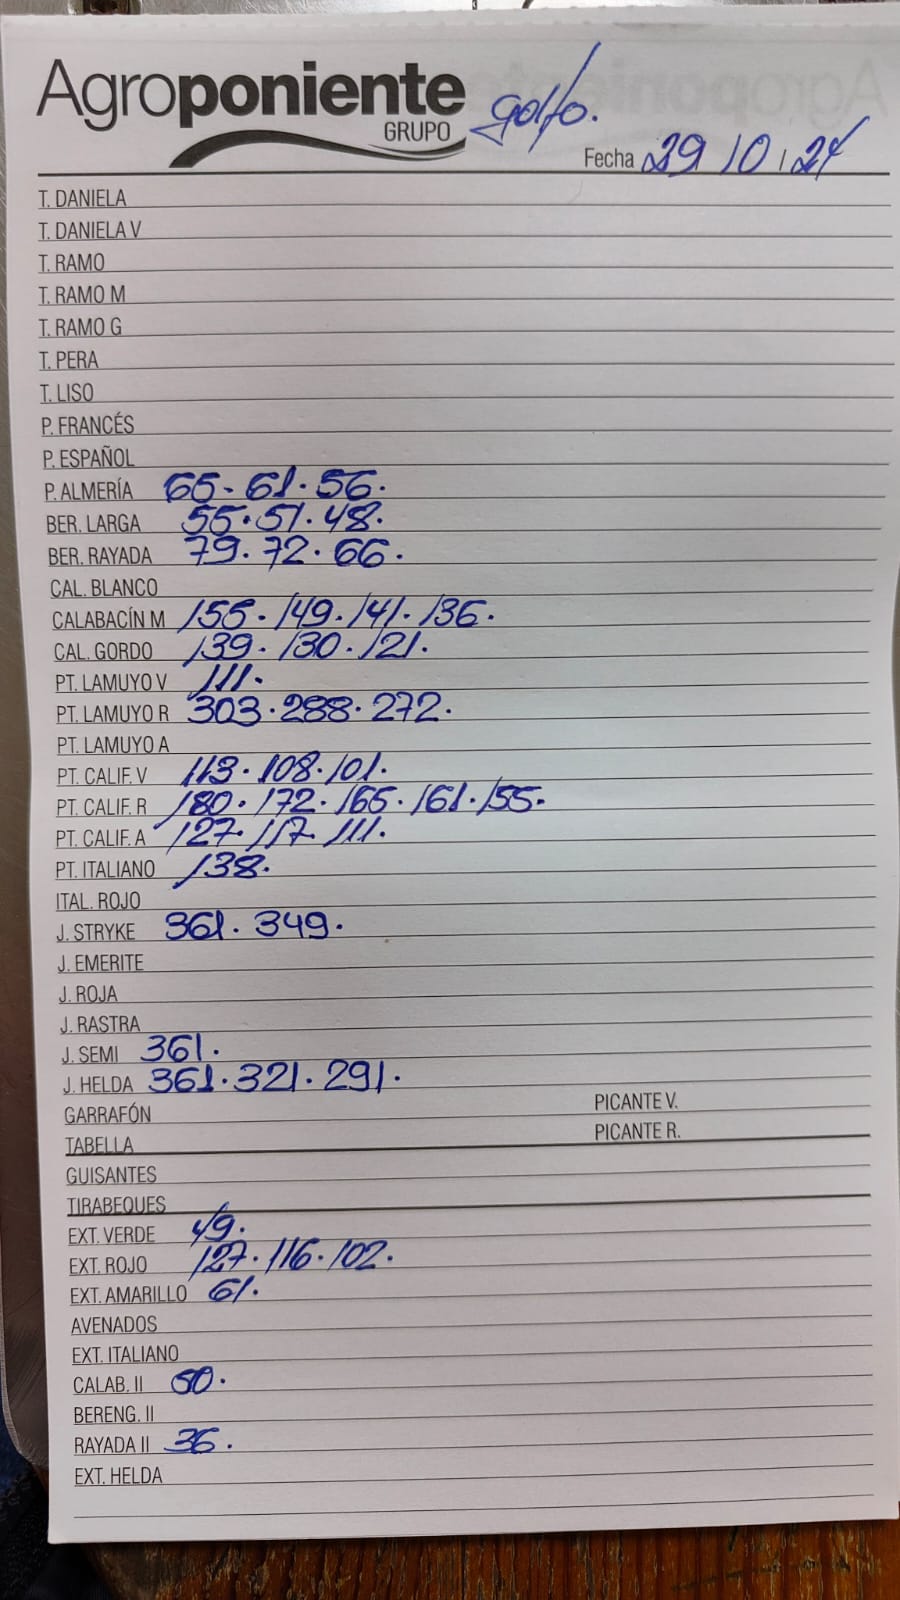 Agroponiente
GRUPO
golfo.
Fecha 29/10/24
T. DANIELA
T. DANIELA V
T. RAMO
T. RAMO M
T. RAMO G
T. PERA
T. LISO
P. FRANCÉS
P. ESPAÑOL
P. ALMERÍA 65. 61. 56.
BER. LARGA 55. 51. 48.
BER. RAYADA 79. 72. 66.
CAL. BLANCO
CALABACÍN M 155. 149. 141. 136.
CAL. GORDO 139. 130. 121.
PT. LAMUYO V 111.
PT. LAMUYO R 303. 288. 272.
PT. LAMUYO A
PT. CALIF. V 113. 108. 101.
PT. CALIF. R 180. 172. 165. 161. 155.
PT. CALIF. A 127. 117. 111.
PT. ITALIANO 138.
ITAL. ROJO
J. STRYKE 361. 349.
J. EMERITE
J. ROJA
J. RASTRA
J. SEMI 361.
J. HELDA 361. 321. 291.
GARRAFÓN PICANTE V.
TABELLA PICANTE R.
GUISANTES
TIRABEQUES
EXT. VERDE 49.
EXT. ROJO 127. 116. 102.
EXT. AMARILLO 61.
AVENADOS
EXT. ITALIANO
CALAB. II 50.
BERENG. II
RAYADA II 36.
EXT. HELDA